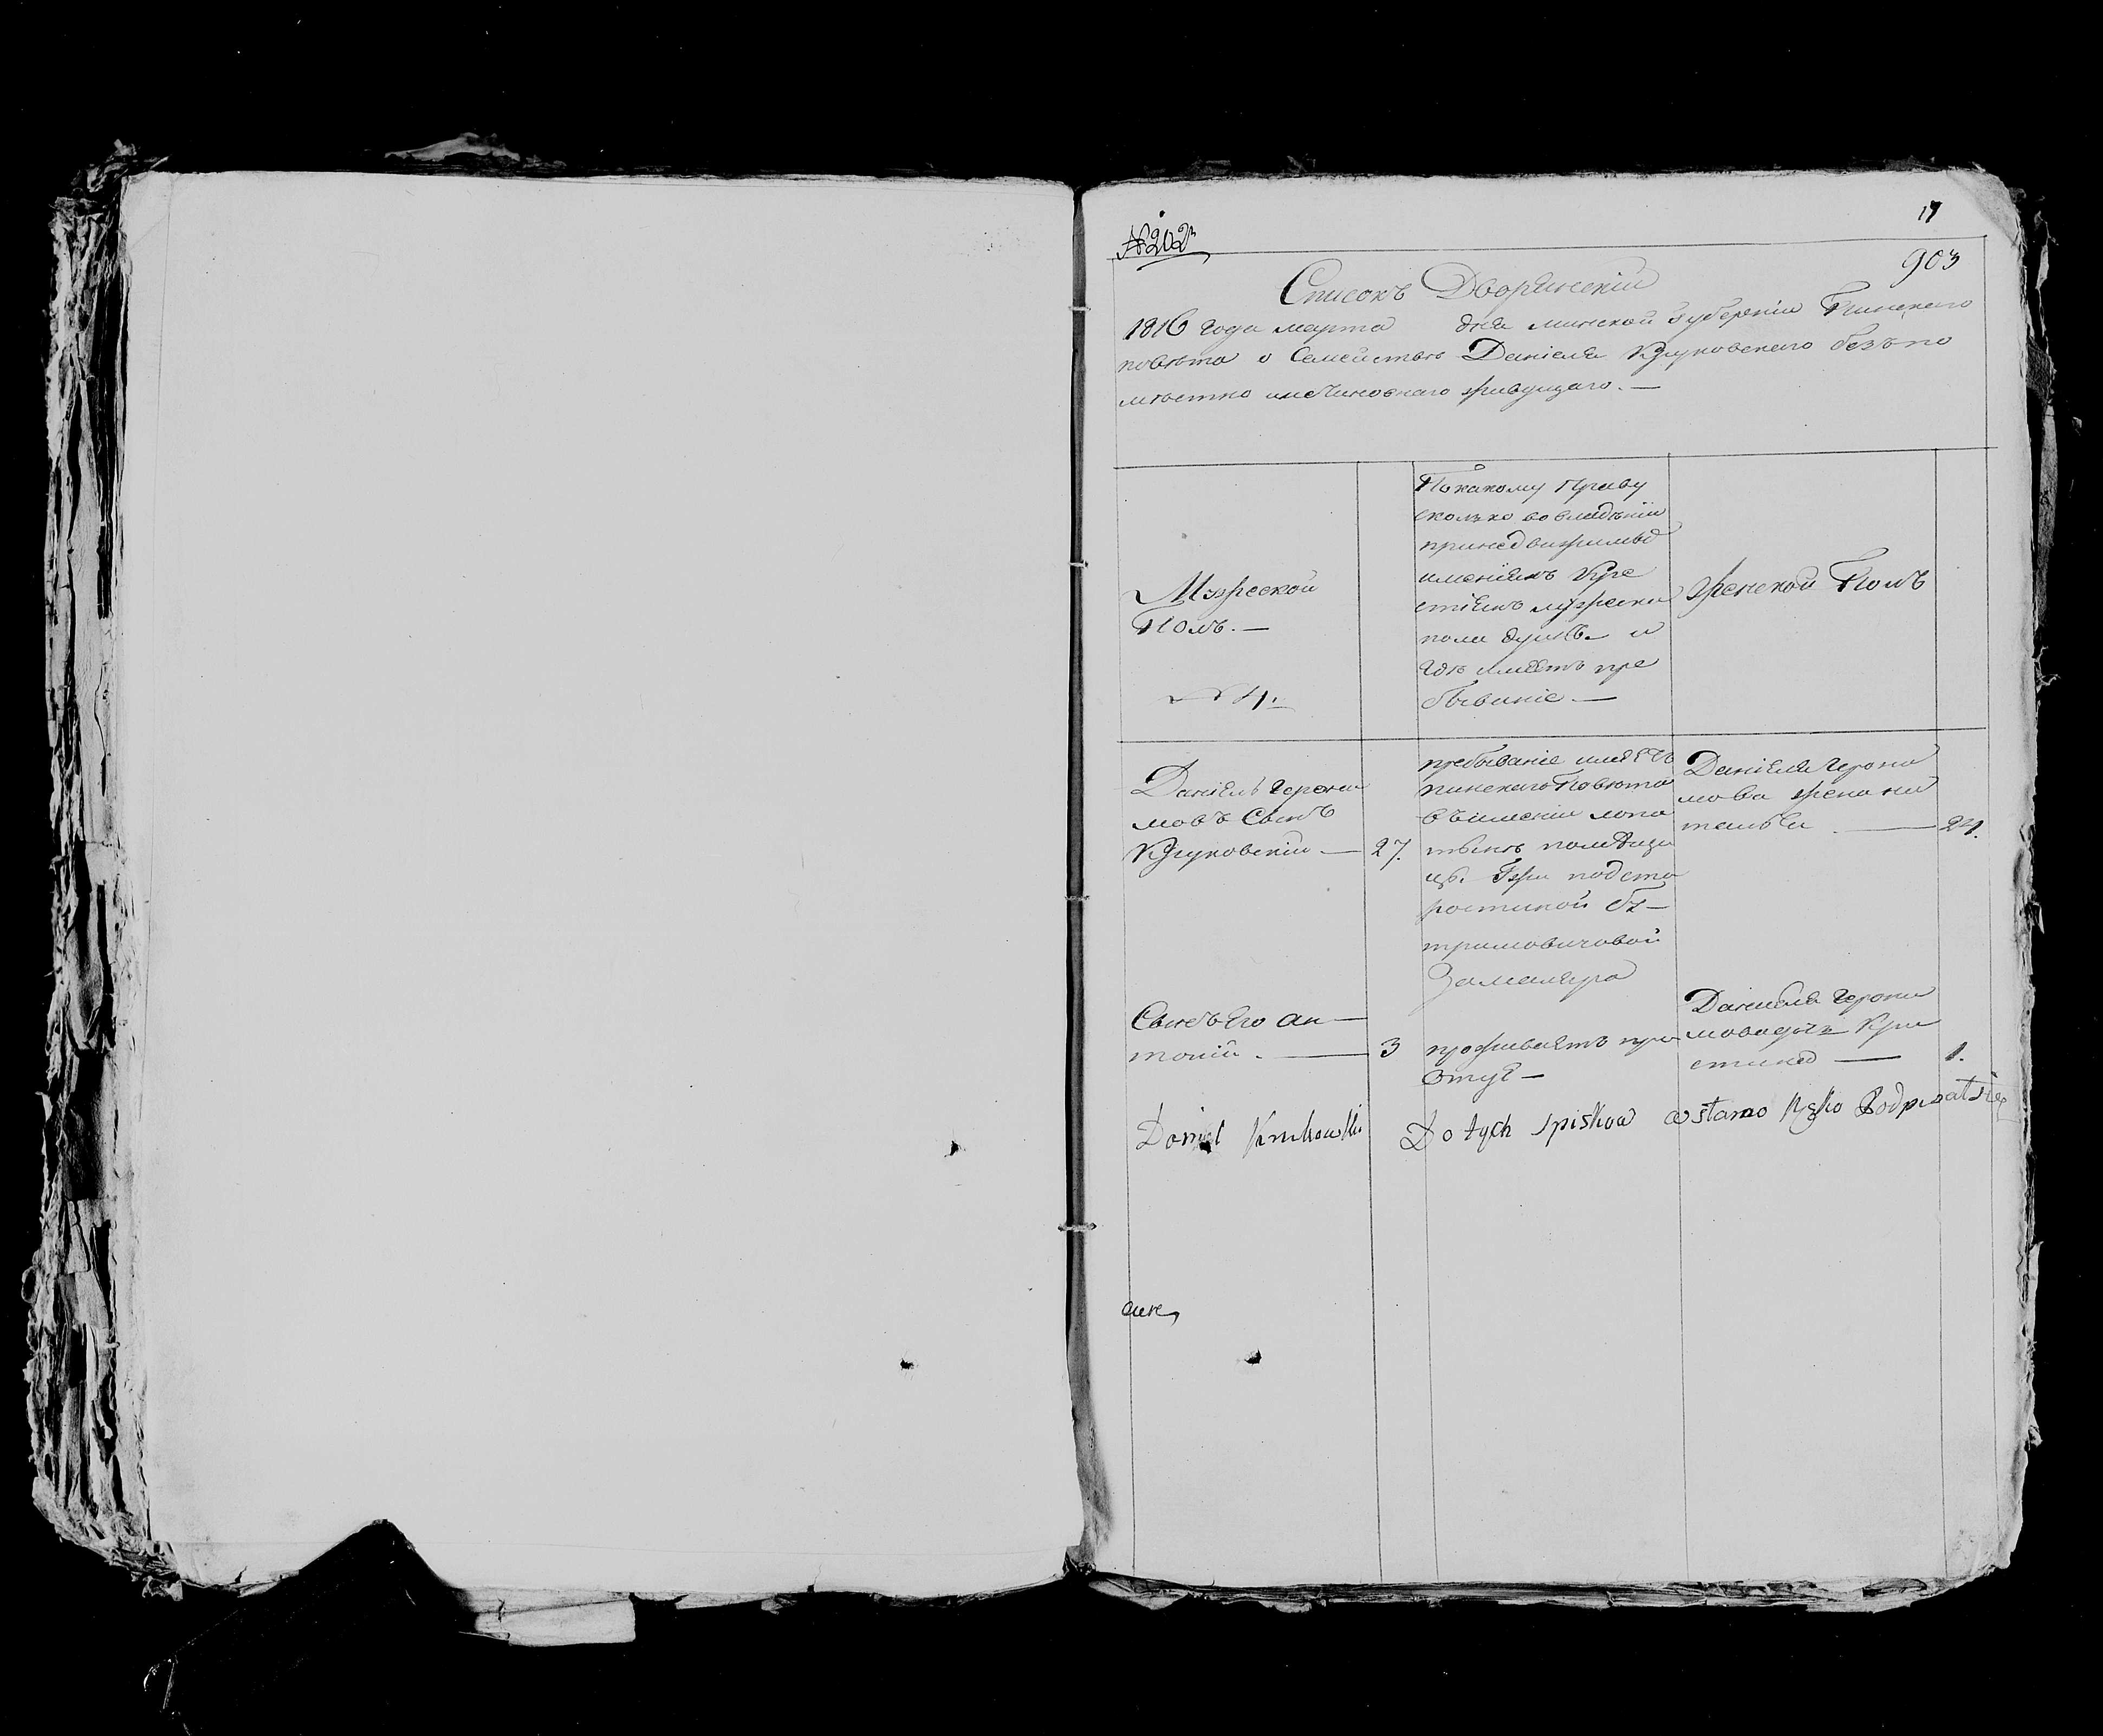 17
№ 202
903
Списокъ Дворянскій
1816 года марта дня минской Губерніи Пинскаго
повѣта о Семействѣ Даніеля Круковскаго безъ по
мѣстно живущаго. —
Мужеской
Полъ. —
№ 4.
По какому Праву
сколко во владѣніи
имѣніемъ Кре
стіянъ мужеска
пола душъ и
гдѣ имѣетъ пре
бываніе —
женской Полъ
Даніель Герони
мовъ Сынъ
Круковскій — 27.
пребываніе имѣетъ
пинскаго Повѣта
въ имѣніи лопа
тынѣ помѣщи
цы подста
ростиной
Даніеля Герони
мова жена на
талья — 24.
Сынъ Его Ан—
тоній. — 3
проживаетъ при
Отцѣ —
Даніеля Герони
мова дочь Кри
стина — 1.
Daniel Krukowski Do tych spiskow własno Ręko Podpisał się